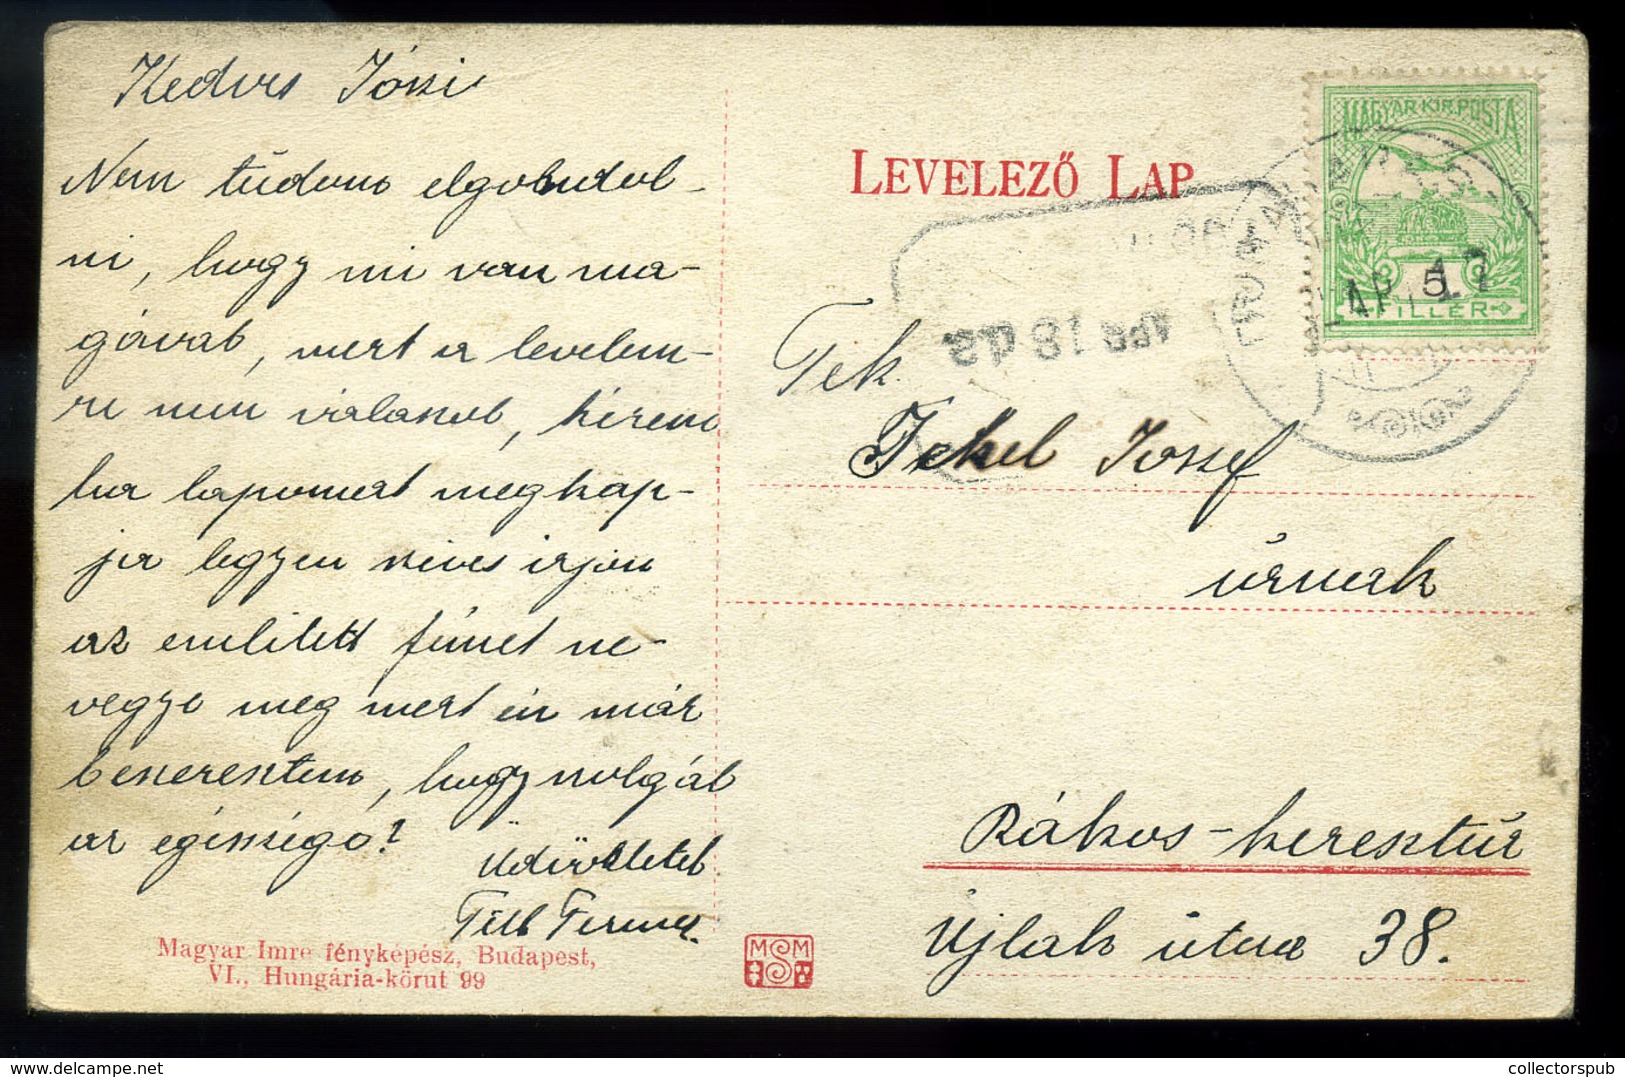 Kedves Józsi
Nem tudom elgondol-
ni, hogy mi van ma-
gával, mert a levelem-
re nem válaszol, kérem
ha lapomat megkap-
ja legyen szíves írjon
az említett fémet ne
vegye meg mert én már
beszereztem, hogy szolgál
az egészsége?
Üdvözlettel
Ferencz.
Magyar Imre fényképész, Budapest,
VI., Hungária-körut 99
MSM
LEVELEZŐ LAP
MAGYAR KIR. POSTA
5
FILLÉR
APR 17
APR 18 d.
Tek.
Tekel József
úrnak
Rákos-keresztúr
Újlak utca 38.
collectorspub.com